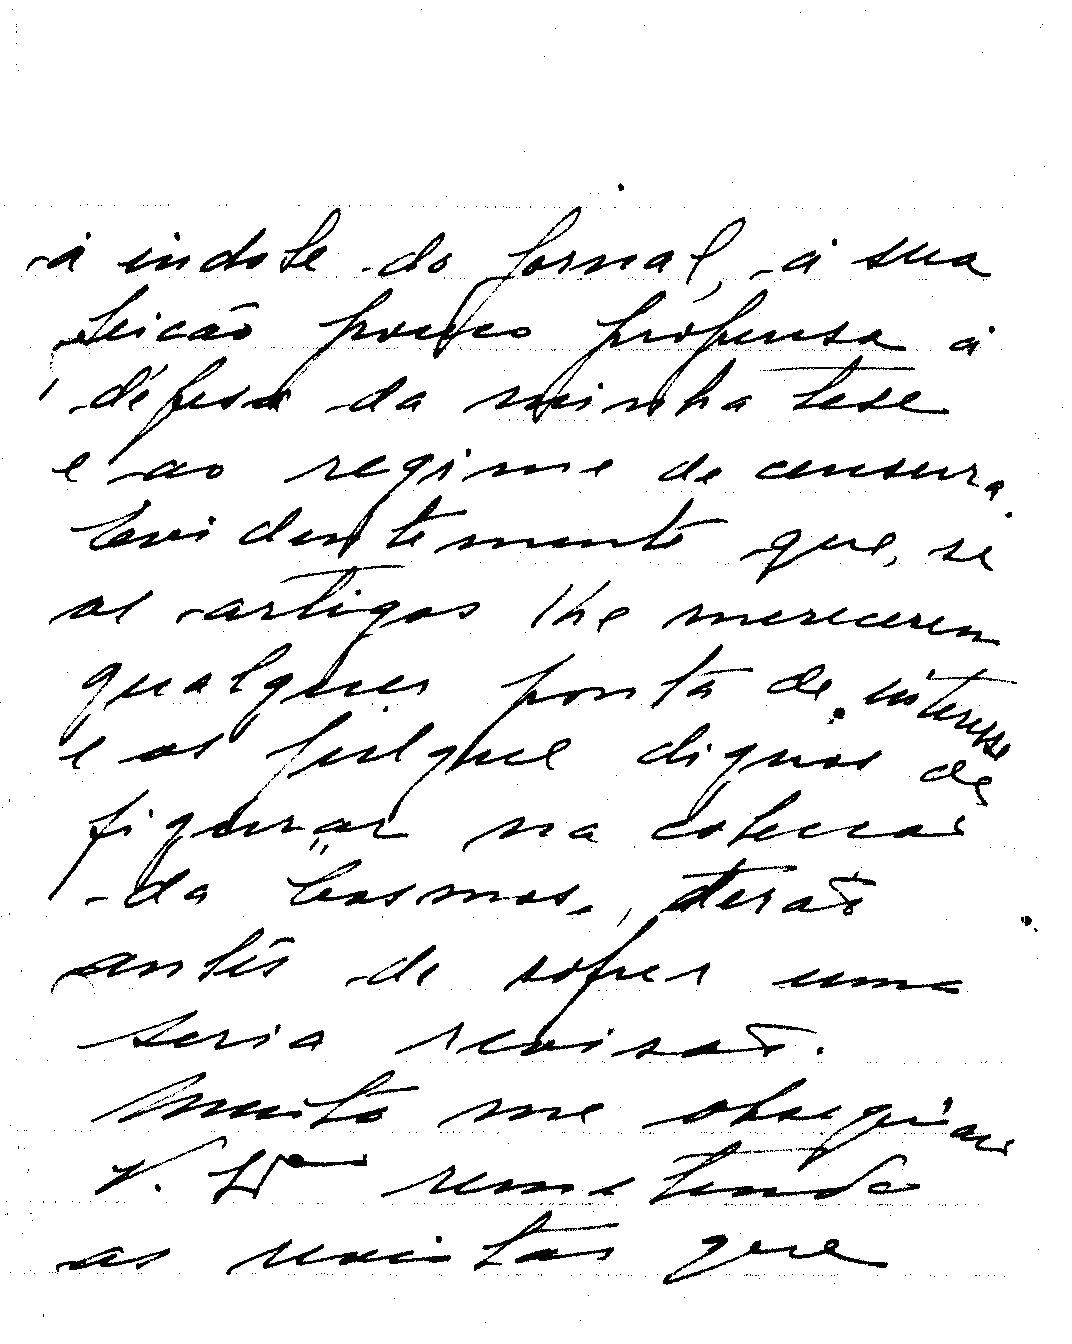 á indole do jornal, á sua
feicão pouco propensa á
défesa da minha tese
e ao regime de censura.
Evidentemente que, se
os artigos lhe merecerem
qualquer ponta de interesse
e os julgue dignos de
figurar na coleccão
da Cosmos, terão
antes de sofrer uma
seria revisão.
Muito me obsequiará
V. Exª remetendo
as revistas que